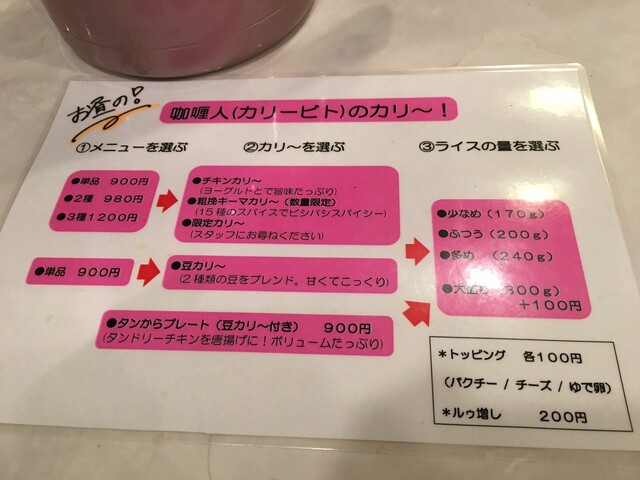 お昼の!
咖喱人(カリービト)のカリ～!
①メニューを選ぶ
②カリ～を選ぶ
③ライスの量を選ぶ
●単品 900円
●2種 980円
●3種1200円
●チキンカリ～
(ヨーグルトとで旨味たっぷり)
●粗挽キーマカリ～(数量限定)
(15種のスパイスでビシバシスパイシー)
●限定カリ～
(スタッフにお尋ねください)
●少なめ(170g)
●ふつう(200g)
●多め (240g)
●大盛り(300g)
+100円
●単品 900円
●豆カリ～
(2種類の豆をブレンド。甘くてこっくり)
●タンからプレート(豆カリ～付き) 900円
(タンドリーチキンを唐揚げに!ボリュームたっぷり)
*トッピング 各100円
(パクチー / チーズ / ゆで卵)
*ルゥ増し 200円